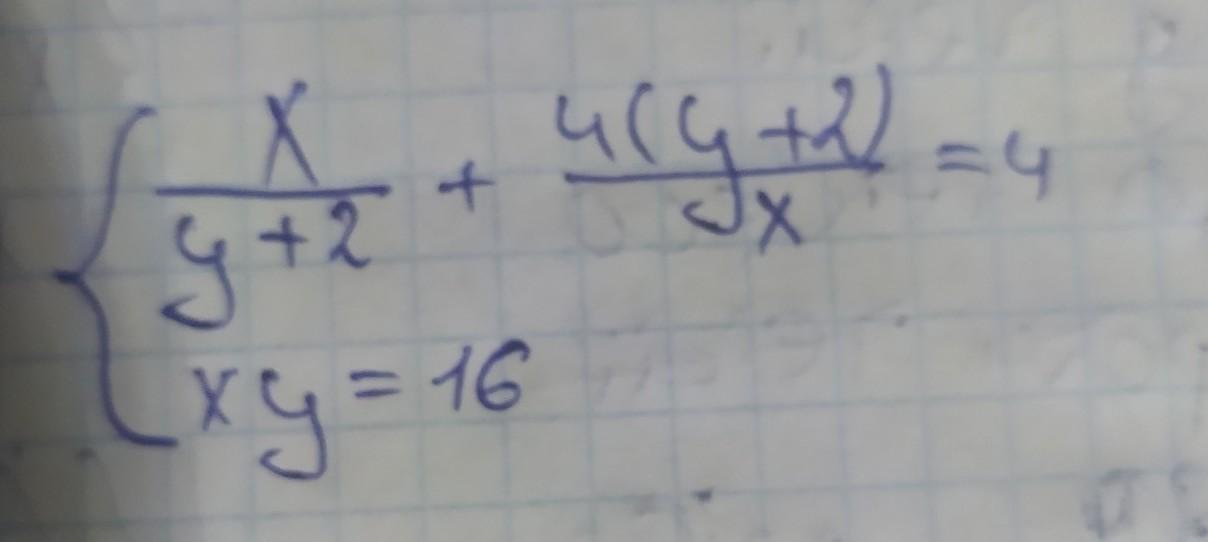 x/(y+2) + 4(y+2)/x = 4
xy = 16